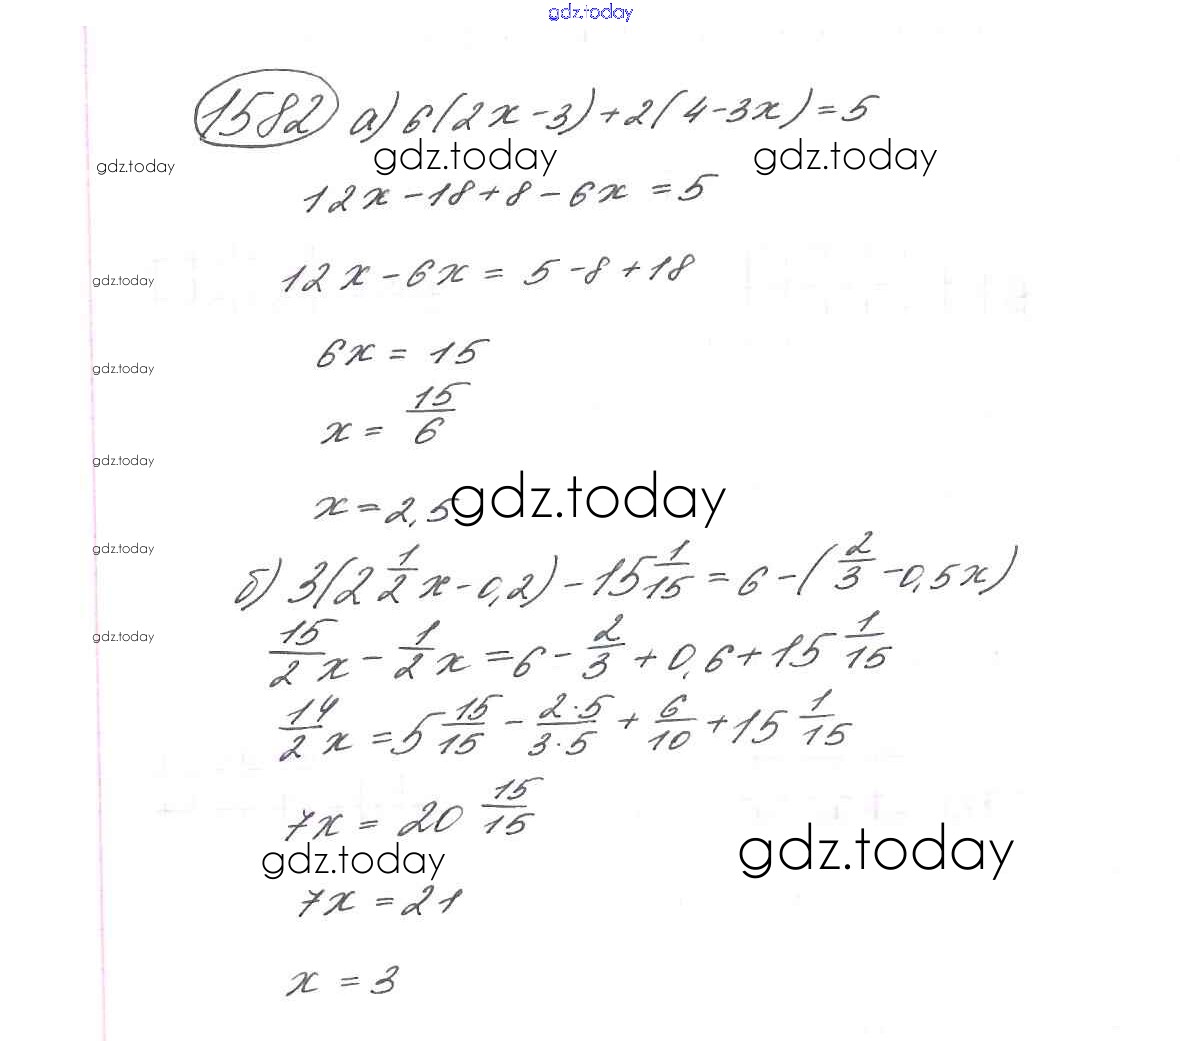 gdz.today
1582 а) 6(2x-3)+2(4-3x)=5
gdz.today gdz.today gdz.today
12x-18+8-6x=5
gdz.today
12x-6x=5-8+18
gdz.today
6x=15
x=15/6
gdz.today
x=2,5
gdz.today
gdz.today
б) 3(2 1/2x-0,2)-15 1/15=6-(2/3-0,5x)
gdz.today
15/2x-1/2x=6-2/3+0,6+15 1/15
14/2x=5 15/15-2·5/3·5+6/10+15 1/15
7x=20 15/15
gdz.today gdz.today
7x=21
x=3